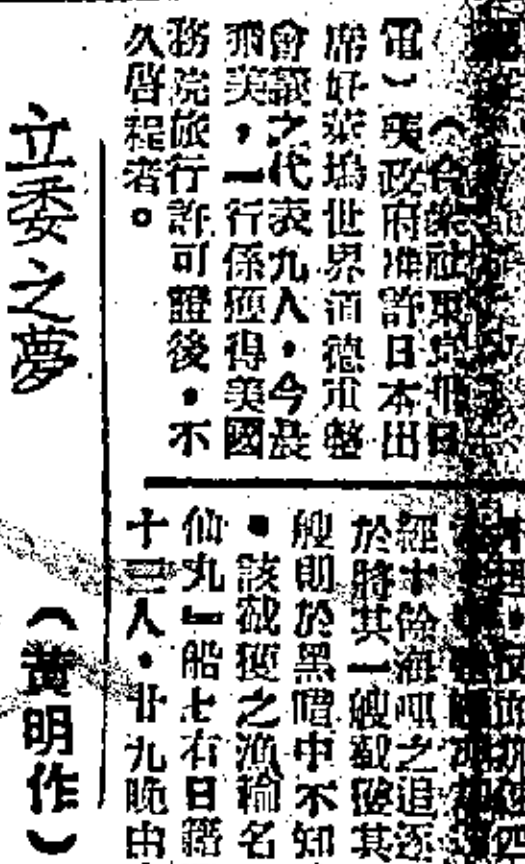 (合眾社東京卅日
電)英政府准許日本出
席好萊塢世界道德重整
會議之代表九人,今晨
飛美,一行係獲得美國
務院旅行許可證後,不
久啓程者。
經十餘海哩之追逐
於將其一艘截獲其
艘則於黑暗中不知
。該截獲之漁輪名
仙丸』船上有日籍
十三人,廿九晚由
立委之夢
(黃明作)